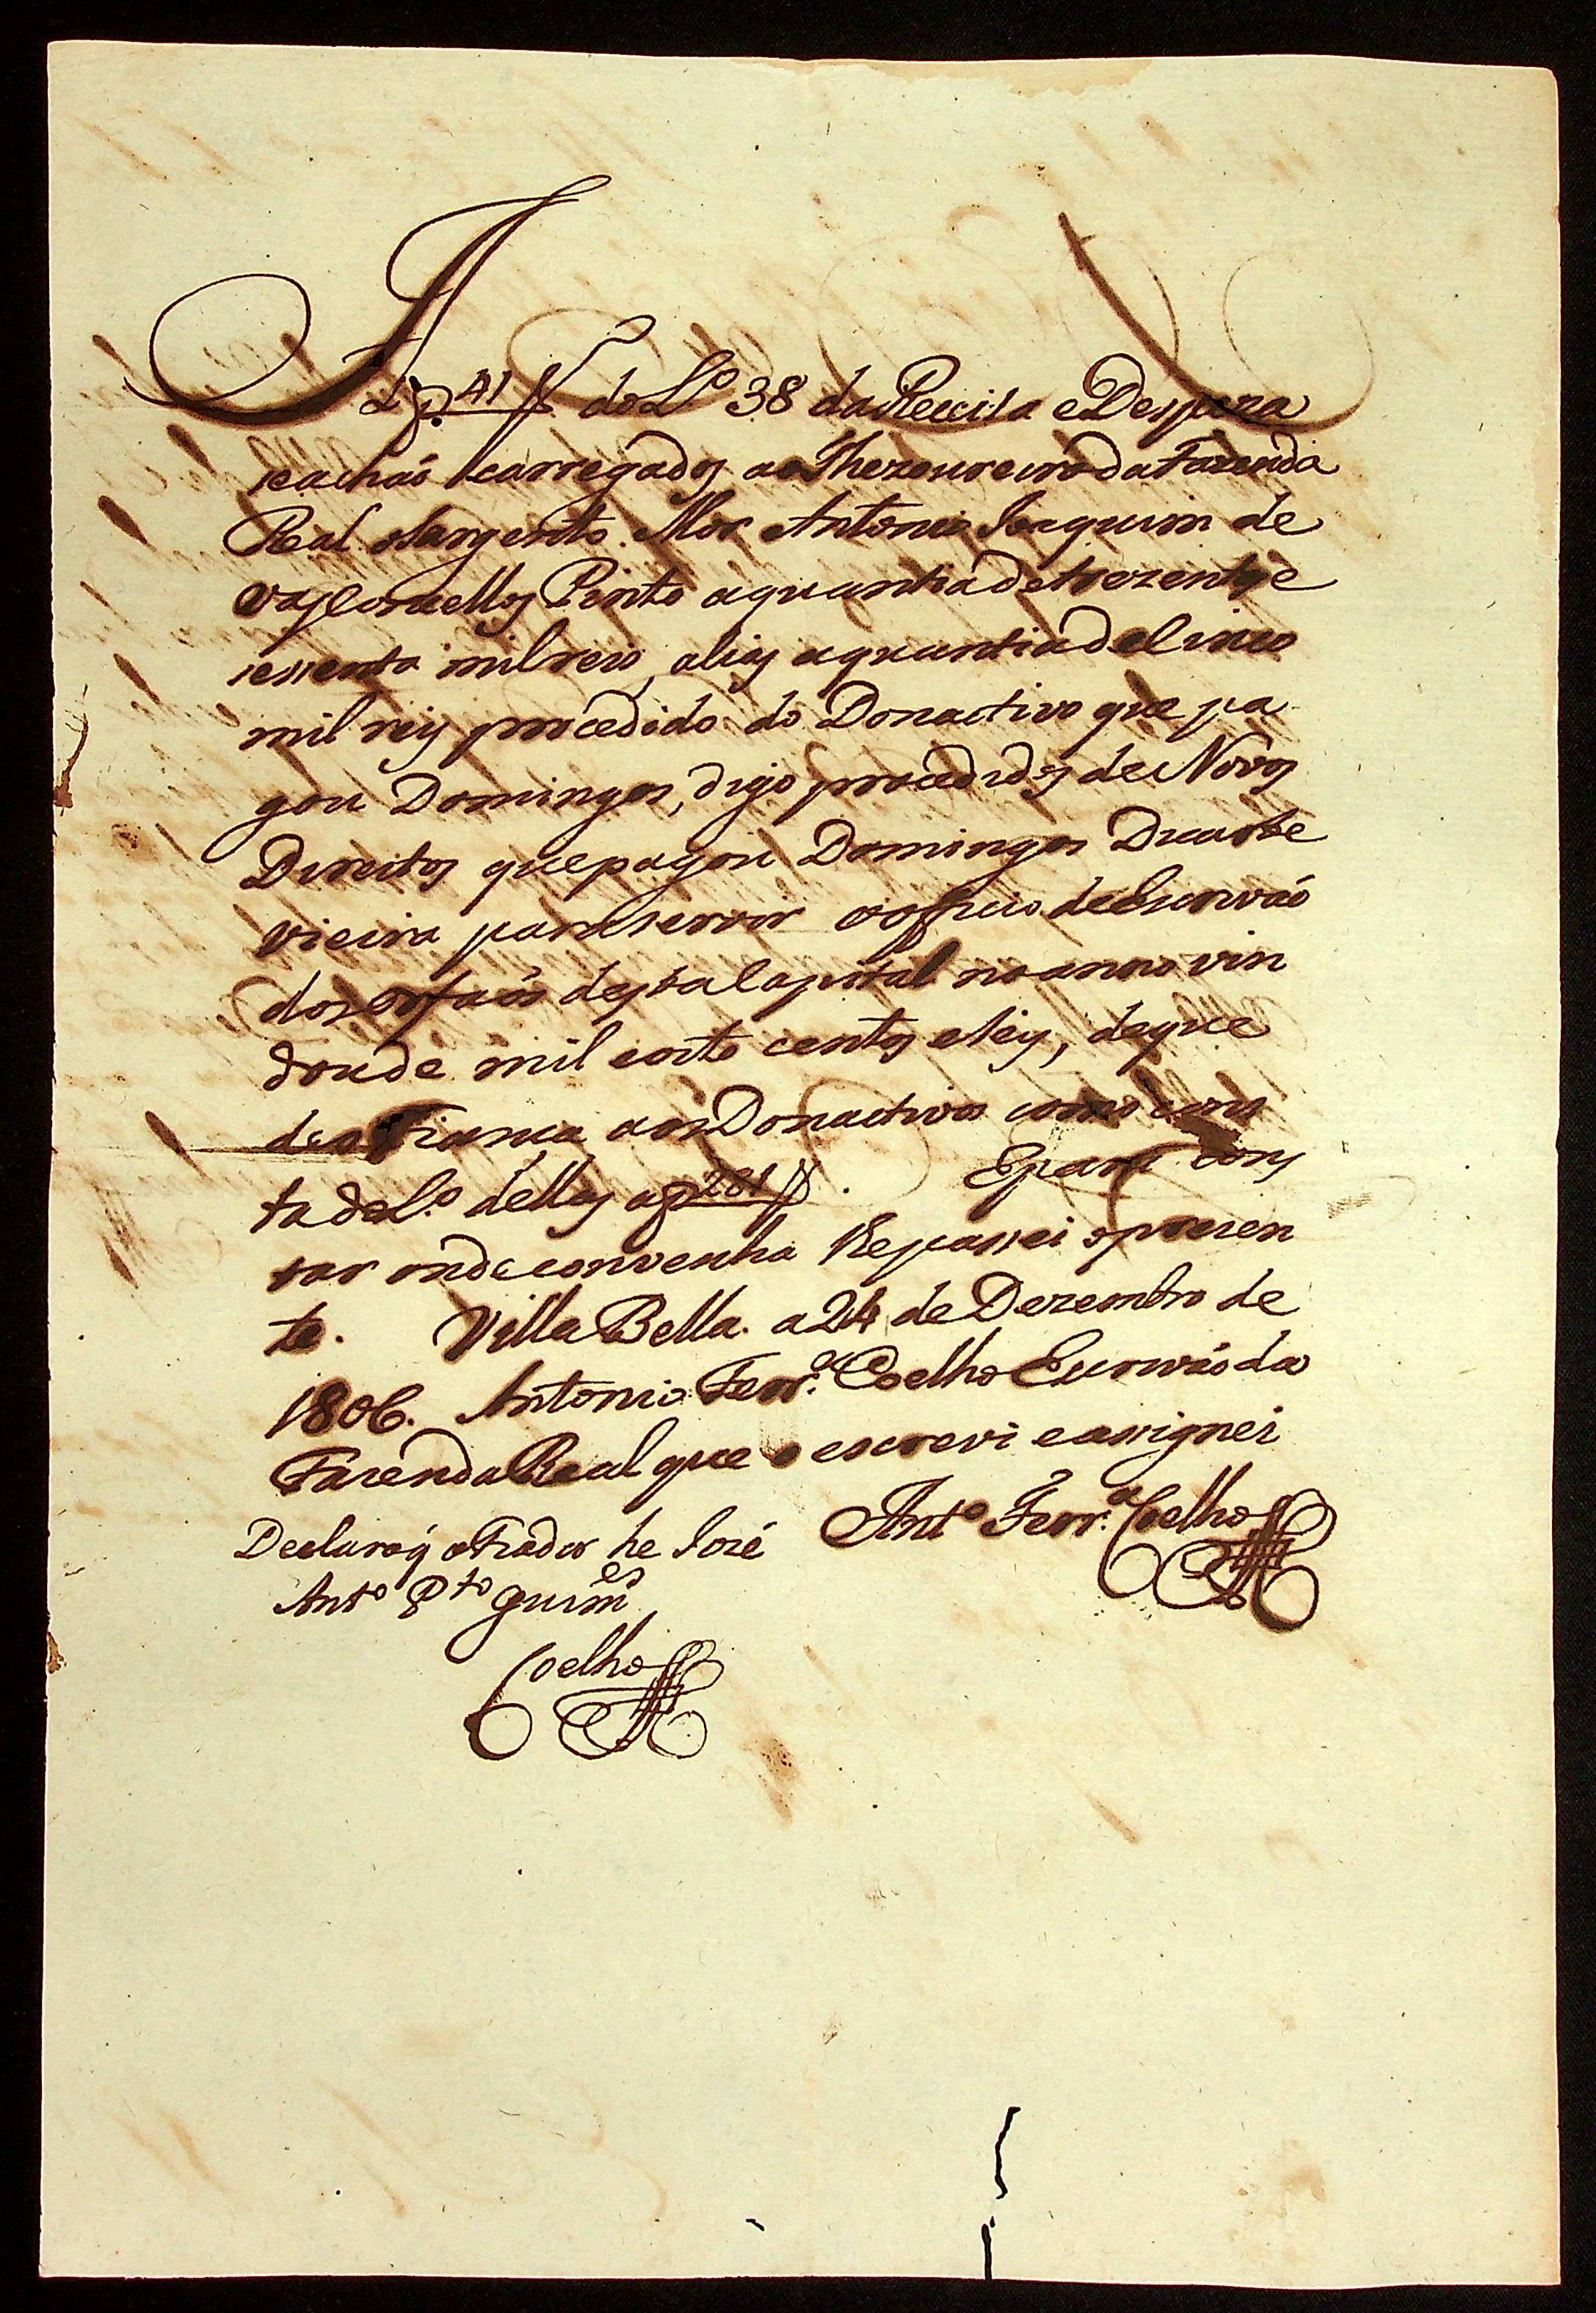 A f. 41 V do L.º 38 da Receita e Despeza
se achaõ carregados ao Thezoureiro da Fazenda
Real o Sargento Mor Antonio Joaquim de
Vasconcellos Pinto a quantia de trezentos e
sessenta mil reis, alias a quantia de Cinco
mil reis procedido do Donactivo que pa
gou Domingos, digo procedidos de Novos
Direitos que pagou Domingos Duarte
Vieira para servir o officio de Escrivaõ
dos Orfaõs desta Capital no anno vin
douro de mil oito centos e seis, de que
deo Fiança aos Donactivos como cons
ta do L.º delles a f. 281 V. E para cons
tar onde convenha lhe passei o prezen
te. Villa Bella a 24 de Dezembro de
1806. Antonio Ferr.ª Coelho Escrivaõ da
Fazenda Real que o escrevi e assignei
Ant.º Ferr.ª Coelho
Declaro q o Fiador he José
Ant.º P.to Guim.es
Coelho